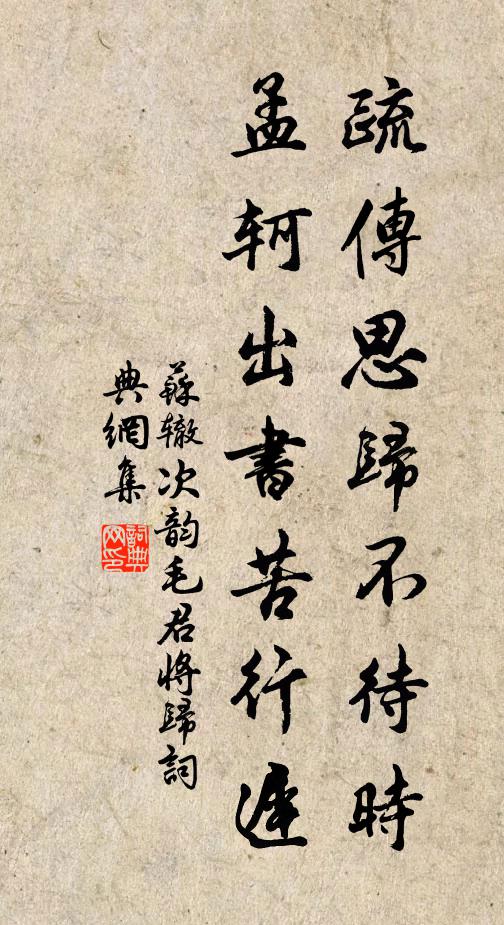 疏傳思歸不待時
孟軻出書苦行遲
蘇轍次韵毛君將歸詞
典網集
詞典
网印